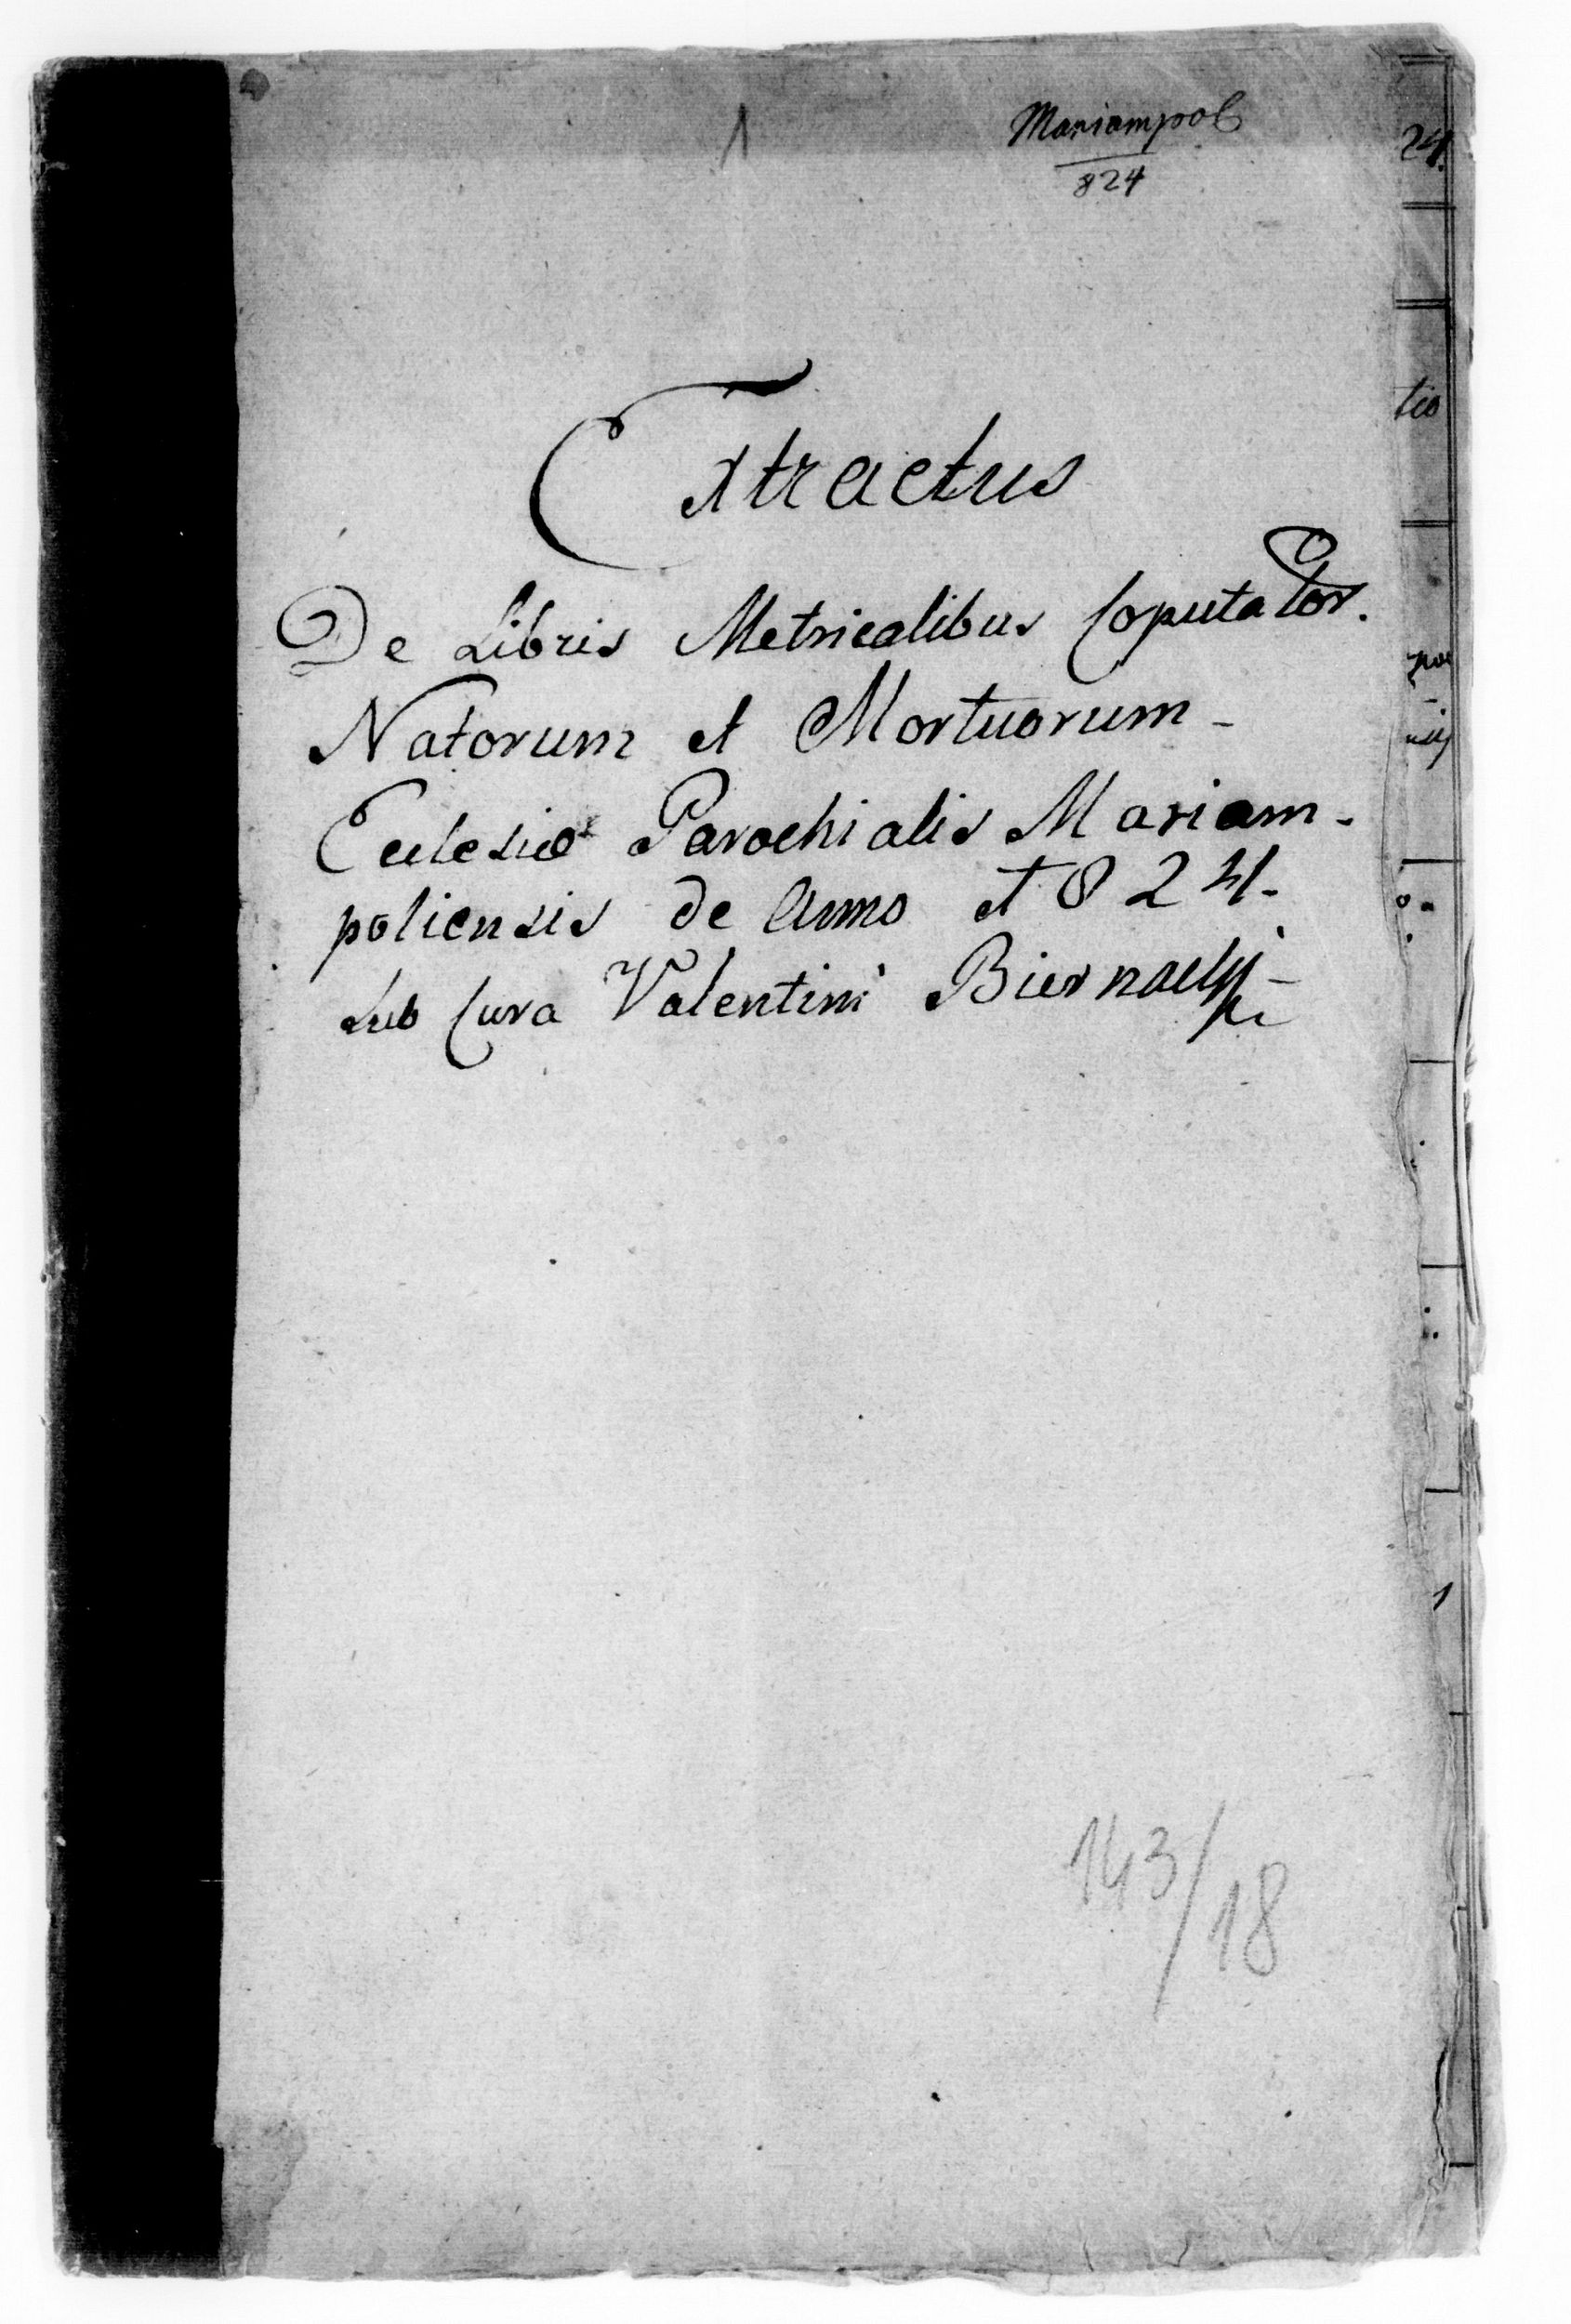 1
Mariampol
824
24.
Extractus
tio
De Libris Metricalibus Coputator.
Natorum et Mortuorum -
Ecclesiæ Parochialis Mariam-
poliensis de Anno 1824.
Sub Cura Valentini
1
143/18